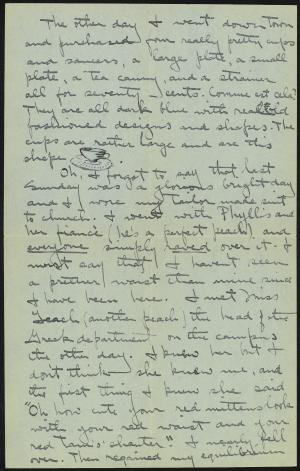 The other day I went down town
and purchased four really pretty cups
and saucers, a large plate, a small
plate, a tea canny, and a strainer
all for seventy cents. Comme est cela?
They are all dark blue with real old
fashioned designs and shapes. The
cups are rather large and are this
shape
Oh, I forgot to say that last
Sunday was a glorious bright day
and I wore my tailor made suit
to church. I went with Phyllis and
her fiancé (he's a perfect peach) and
everyone simply raved over it. I
must say that I haven't seen
a prettier waist than mine since
I have been here. I met Miss
Leach (another peach) the head of the
Greek department on the campus
the other day. I knew her but I
don't think she knew me, and
the first thing I knew she said
"Oh how cute your red mittens look
with your red waist and your
red Tam o'shanter." I nearly fell
over. Then regained my equilibrium